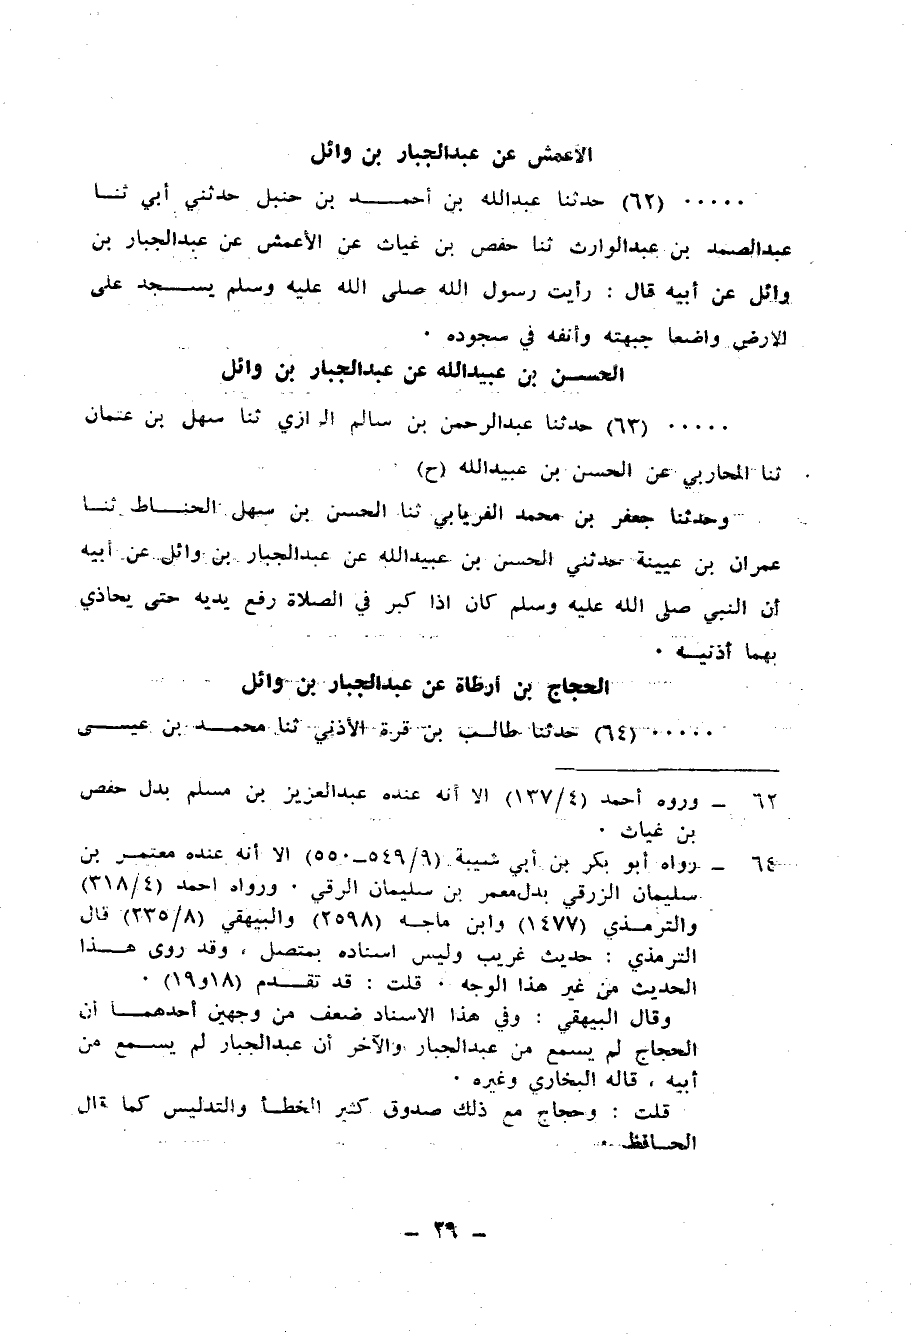 الأعمش عن عبدالجبار بن وائل
..... (٦٢) حدثنا عبدالله بن أحمــد بن حنبل حدثني أبي ثنــا
عبدالصمد بن عبدالوارث ثنا حفص بن غياث عن الأعمش عن عبدالجبار بن
وائل عن أبيه قال : رأيت رسول الله صلى الله عليه وسلم يســجد على
الارض واضعا جبهته وأنفه في سجوده .
الحســن بن عبيدالله عن عبدالجبار بن وائل
..... (٦٣) حدثنا عبدالرحمن بن سالم الرازي ثنا سهل بن عثمان
ثنا المحاربي عن الحسن بن عبيدالله (ح)
وحدثنا جعفر بن محمد الفريابي ثنا الحسن بن سهل الحنــاط ثنــا
عمران بن عيينة حدثني الحسن بن عبيدالله عن عبدالجبار بن وائل عن أبيه
أن النبي صلى الله عليه وسلم كان اذا كبر في الصلاة رفع يديه حتى يحاذي
بهما أذنيــه .
الحجاج بن أرطاة عن عبدالجبار بن وائل
..... (٦٤) حدثنا طالــب بن قرة الأذني ثنا محمــد بن عيســى
٦٢ ـ وروه أحمد (١٣٧/٤) الا أنه عنده عبدالعزيز بن مسلم بدل حفص
بن غياث .
٦٤ ـ رواه أبو بكر بن أبي شيبة (٥٤٩/٩ـ٥٥٠) الا أنه عنده معتمــر بن
سليمان الزرقي بدل معمر بن سليمان الرقي . ورواه احمد (٣١٨/٤)
والترمــذي (١٤٧٧) وابن ماجــه (٢٥٩٨) والبيهقي (٢٣٥/٨) قال
الترمذي : حديث غريب وليس اسناده بمتصل ، وقد روى هــذا
الحديث من غير هذا الوجه . قلت : قد تقــدم (١٨و١٩) .
وقال البيهقي : وفي هذا الاسناد ضعف من وجهين أحدهمــا أن
الحجاج لم يسمع من عبدالجبار والآخر أن عبدالجبار لم يســمع من
أبيه ، قاله البخاري وغيره .
قلت : وحجاج مع ذلك صدوق كثير الخطــأ والتدليس كما قال
الحــافظ .
ـ ٣٩ ـ